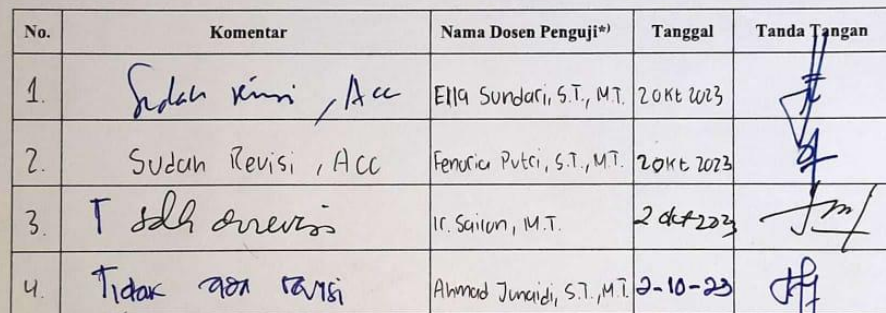 No. Komentar Nama Dosen Penguji*) Tanggal Tanda Tangan
1. Sudah revisi, Acc Ella Sundari, S.T., M.T. 2 Okt 2023
2. Sudah Revisi, Acc Fenoria Putri, S.T., M.T. 2 Okt 2023
3. T sdh direvisi Ir. Sairon, M.T. 2 okt 2023
4. Tidak ada revisi Ahmad Junaidi, S.T., M.T. 2-10-23